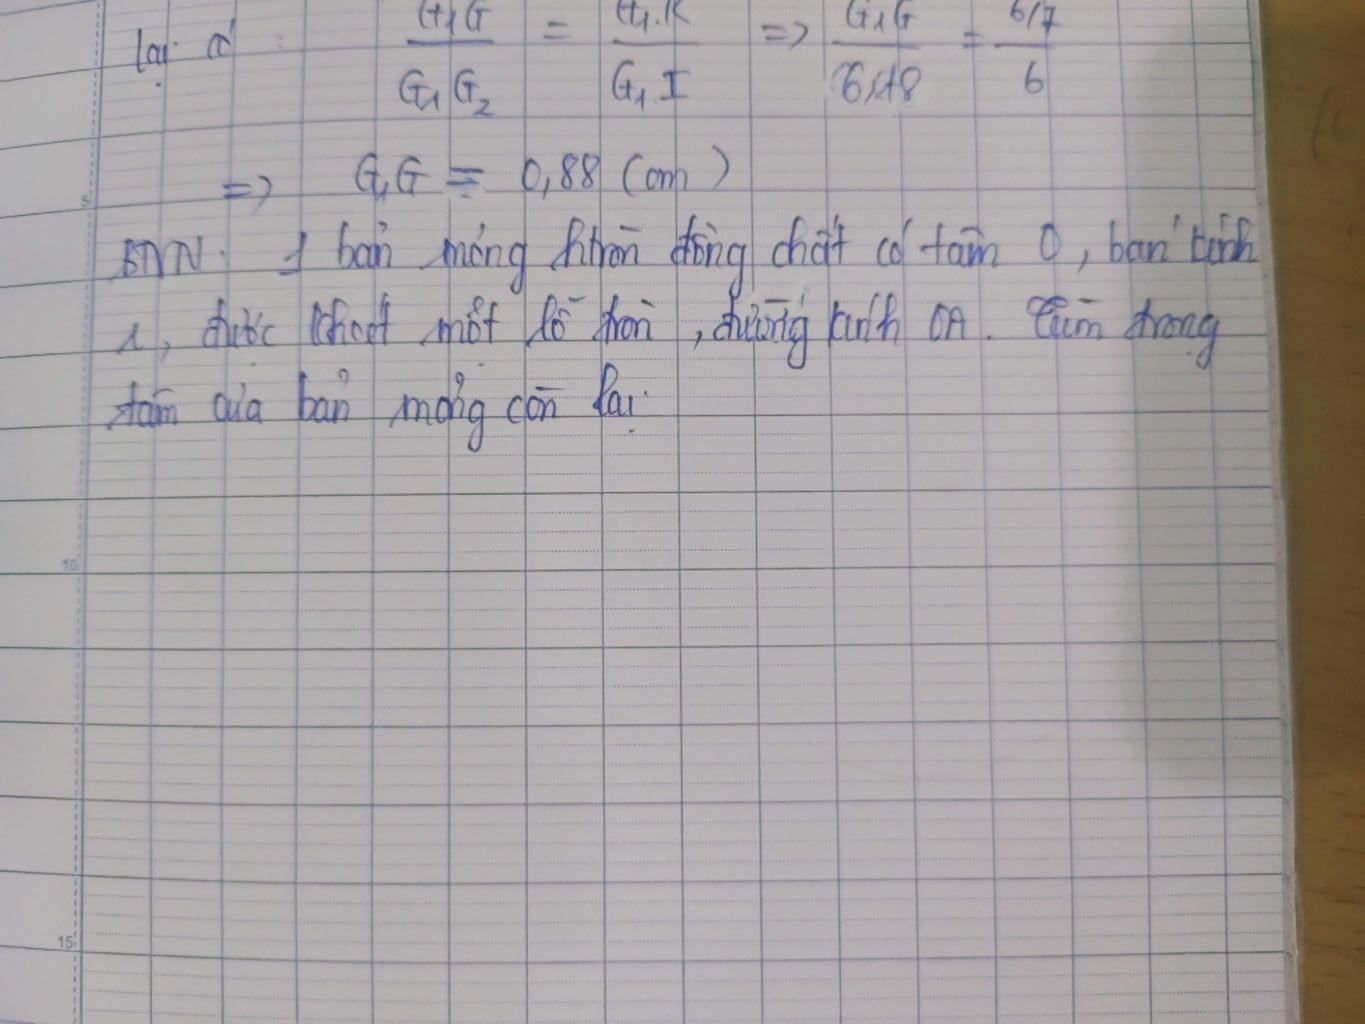 lại có: G₁G / G₁G₂ = G₁K / G₁I => G₁G / 6,18 = 6/7 / 6
=> G₁G = 0,88 (cm)
BTVN: 1 bản mỏng hình tròn đồng chất có tâm O, bán kính
1, được khoét một lỗ tròn, đường kính OA. Tìm trọng
tâm của bản mỏng còn lại.
5
10
15